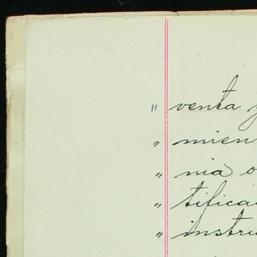 " venta
" mien
" nia o
" tifica
" instru